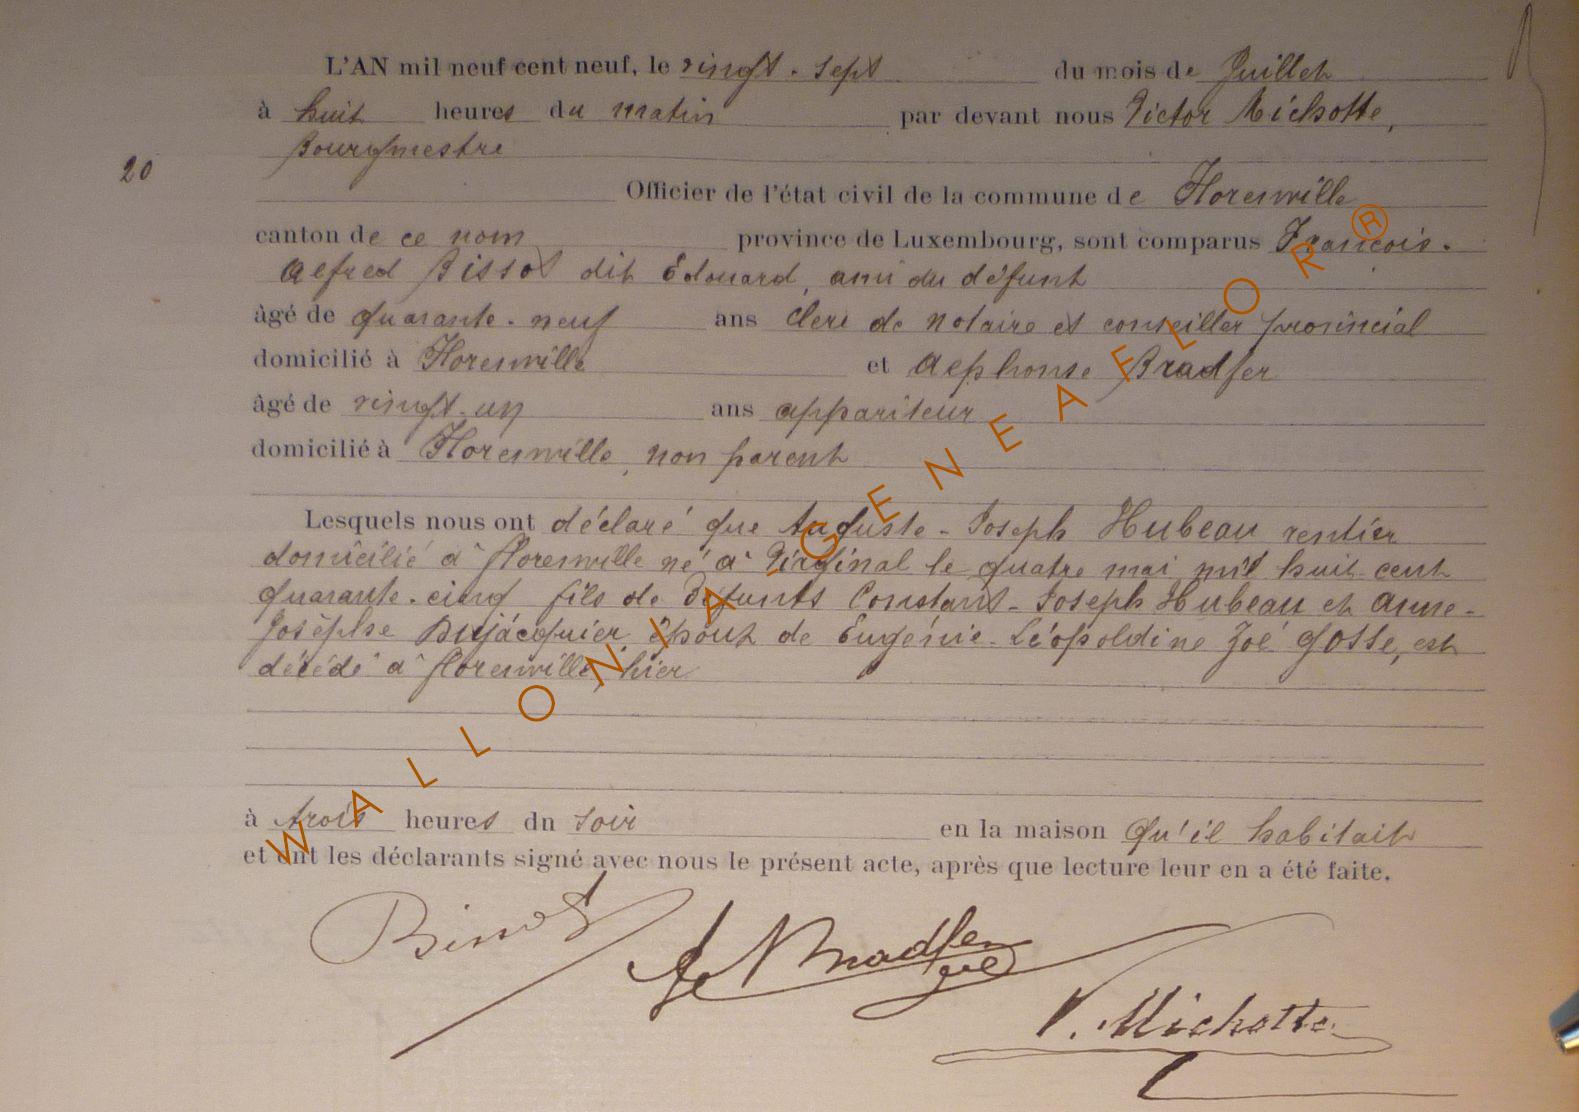 L'AN mil neuf cent neuf, le vingt-sept du mois de Juillet
à huit heures du matin par devant nous Victor Michotte,
Bourgmestre
20
Officier de l'état civil de la commune de Florenville
canton de ce nom province de Luxembourg, sont comparus François-
Alfred Bissot dit Edouard, ami du défunt
âgé de quarante-neuf ans clerc de notaire et conseiller provincial
domicilié à Florenville et Alphonse Bradfer
âgé de vingt-un ans appariteur
domicilié à Florenville, non parent
Lesquels nous ont déclaré que Auguste-Joseph Hubeau rentier
domicilié à Florenville né à Virginal le quatre mai mil huit cent
quarante-cinq fils de Défunts Constant-Joseph Hubeau et Anne-
Josèphe Dujacquier époux de Eugénie-Léopoldine Zoé Gosse, est
décédé à Florenville, hier
à trois heures du soir en la maison qu'il habitait
et ont les déclarants signé avec nous le présent acte, après que lecture leur en a été faite.
Bissot
Bradfer
V. Michotte
WALLONIA-GENEAFLOR®